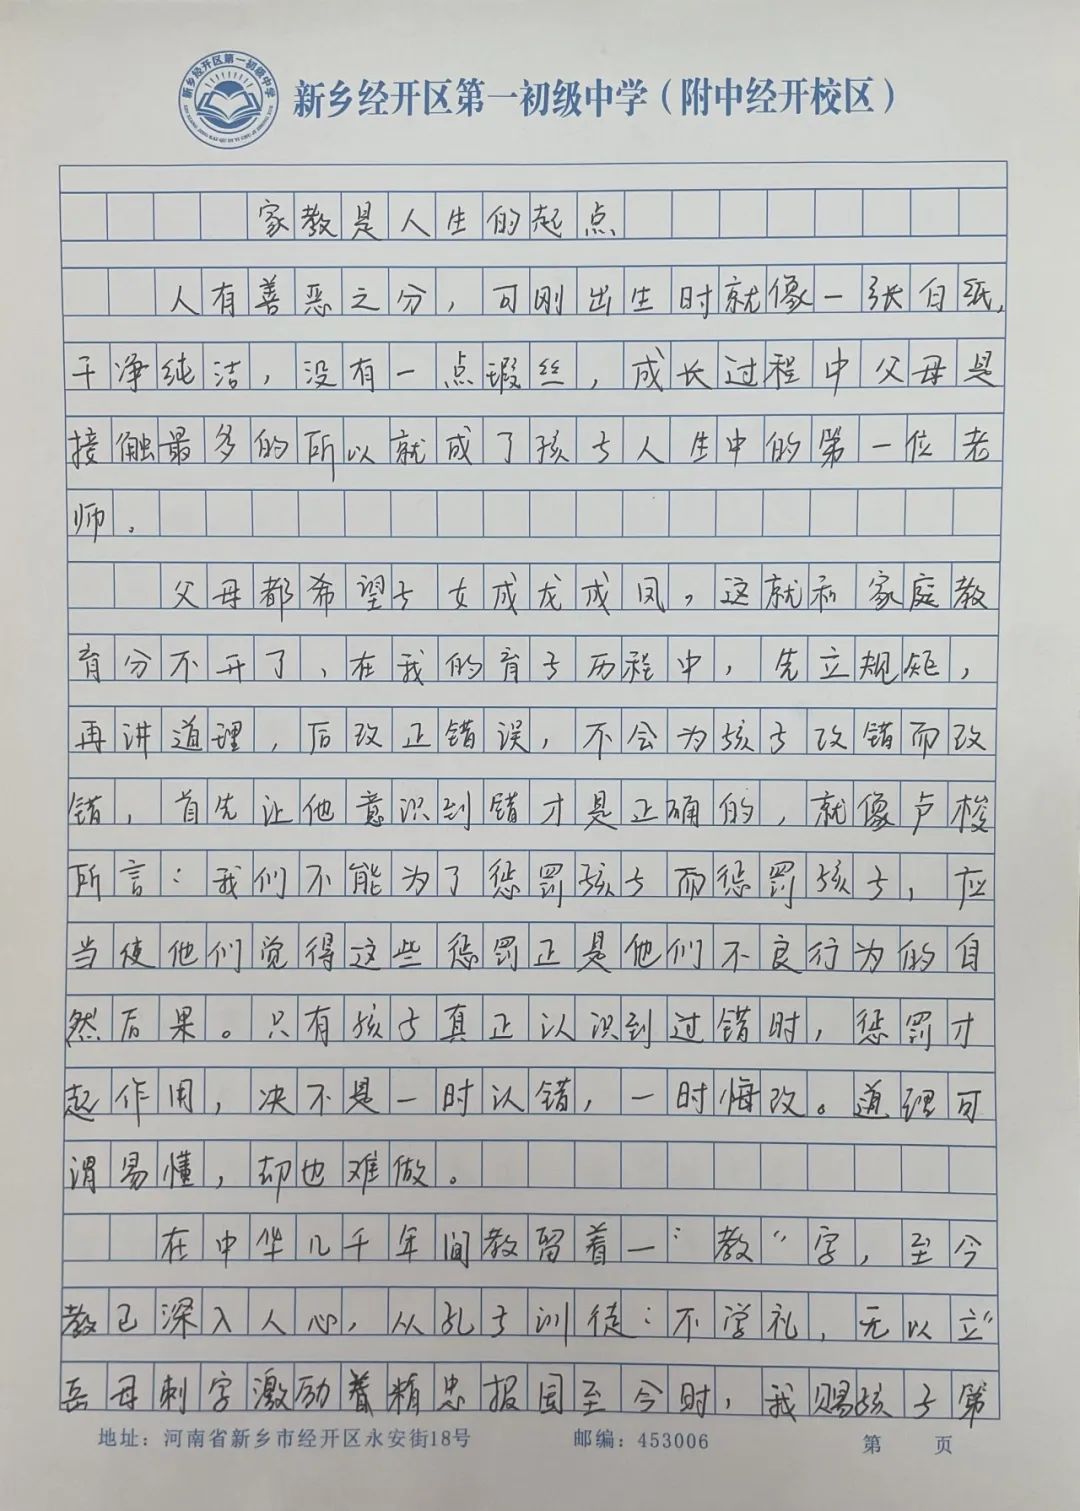 新乡经开区第一初级中学
新乡经开区第一初级中学（附中经开校区）
家教是人生的起点
人有善恶之分，可刚出生时就像一张白纸，
干净纯洁，没有一点瑕丝，成长过程中父母是
接触最多的所以就成了孩子人生中的第一位老
师。
父母都希望子女成龙成凤，这就和家庭教
育分不开了、在我的育子历程中，先立规矩，
再讲道理，后改正错误，不会为孩子改错而改
错，首先让他意识到错才是正确的，就像卢梭
所言：我们不能为了惩罚孩子而惩罚孩子，应
当使他们觉得这些惩罚正是他们不良行为的自
然后果。只有孩子真正认识到过错时，惩罚才
起作用，决不是一时认错，一时悔改。道理可
谓易懂，却也难做。
在中华几千年间教留着一“教”字，至今
教已深入人心，从孔子训徒：不学礼，无以立”
岳母刺字激励着精忠报国至今时，我赐孩子第
地址：河南省新乡市经开区永安街18号 邮编：453006 第 页